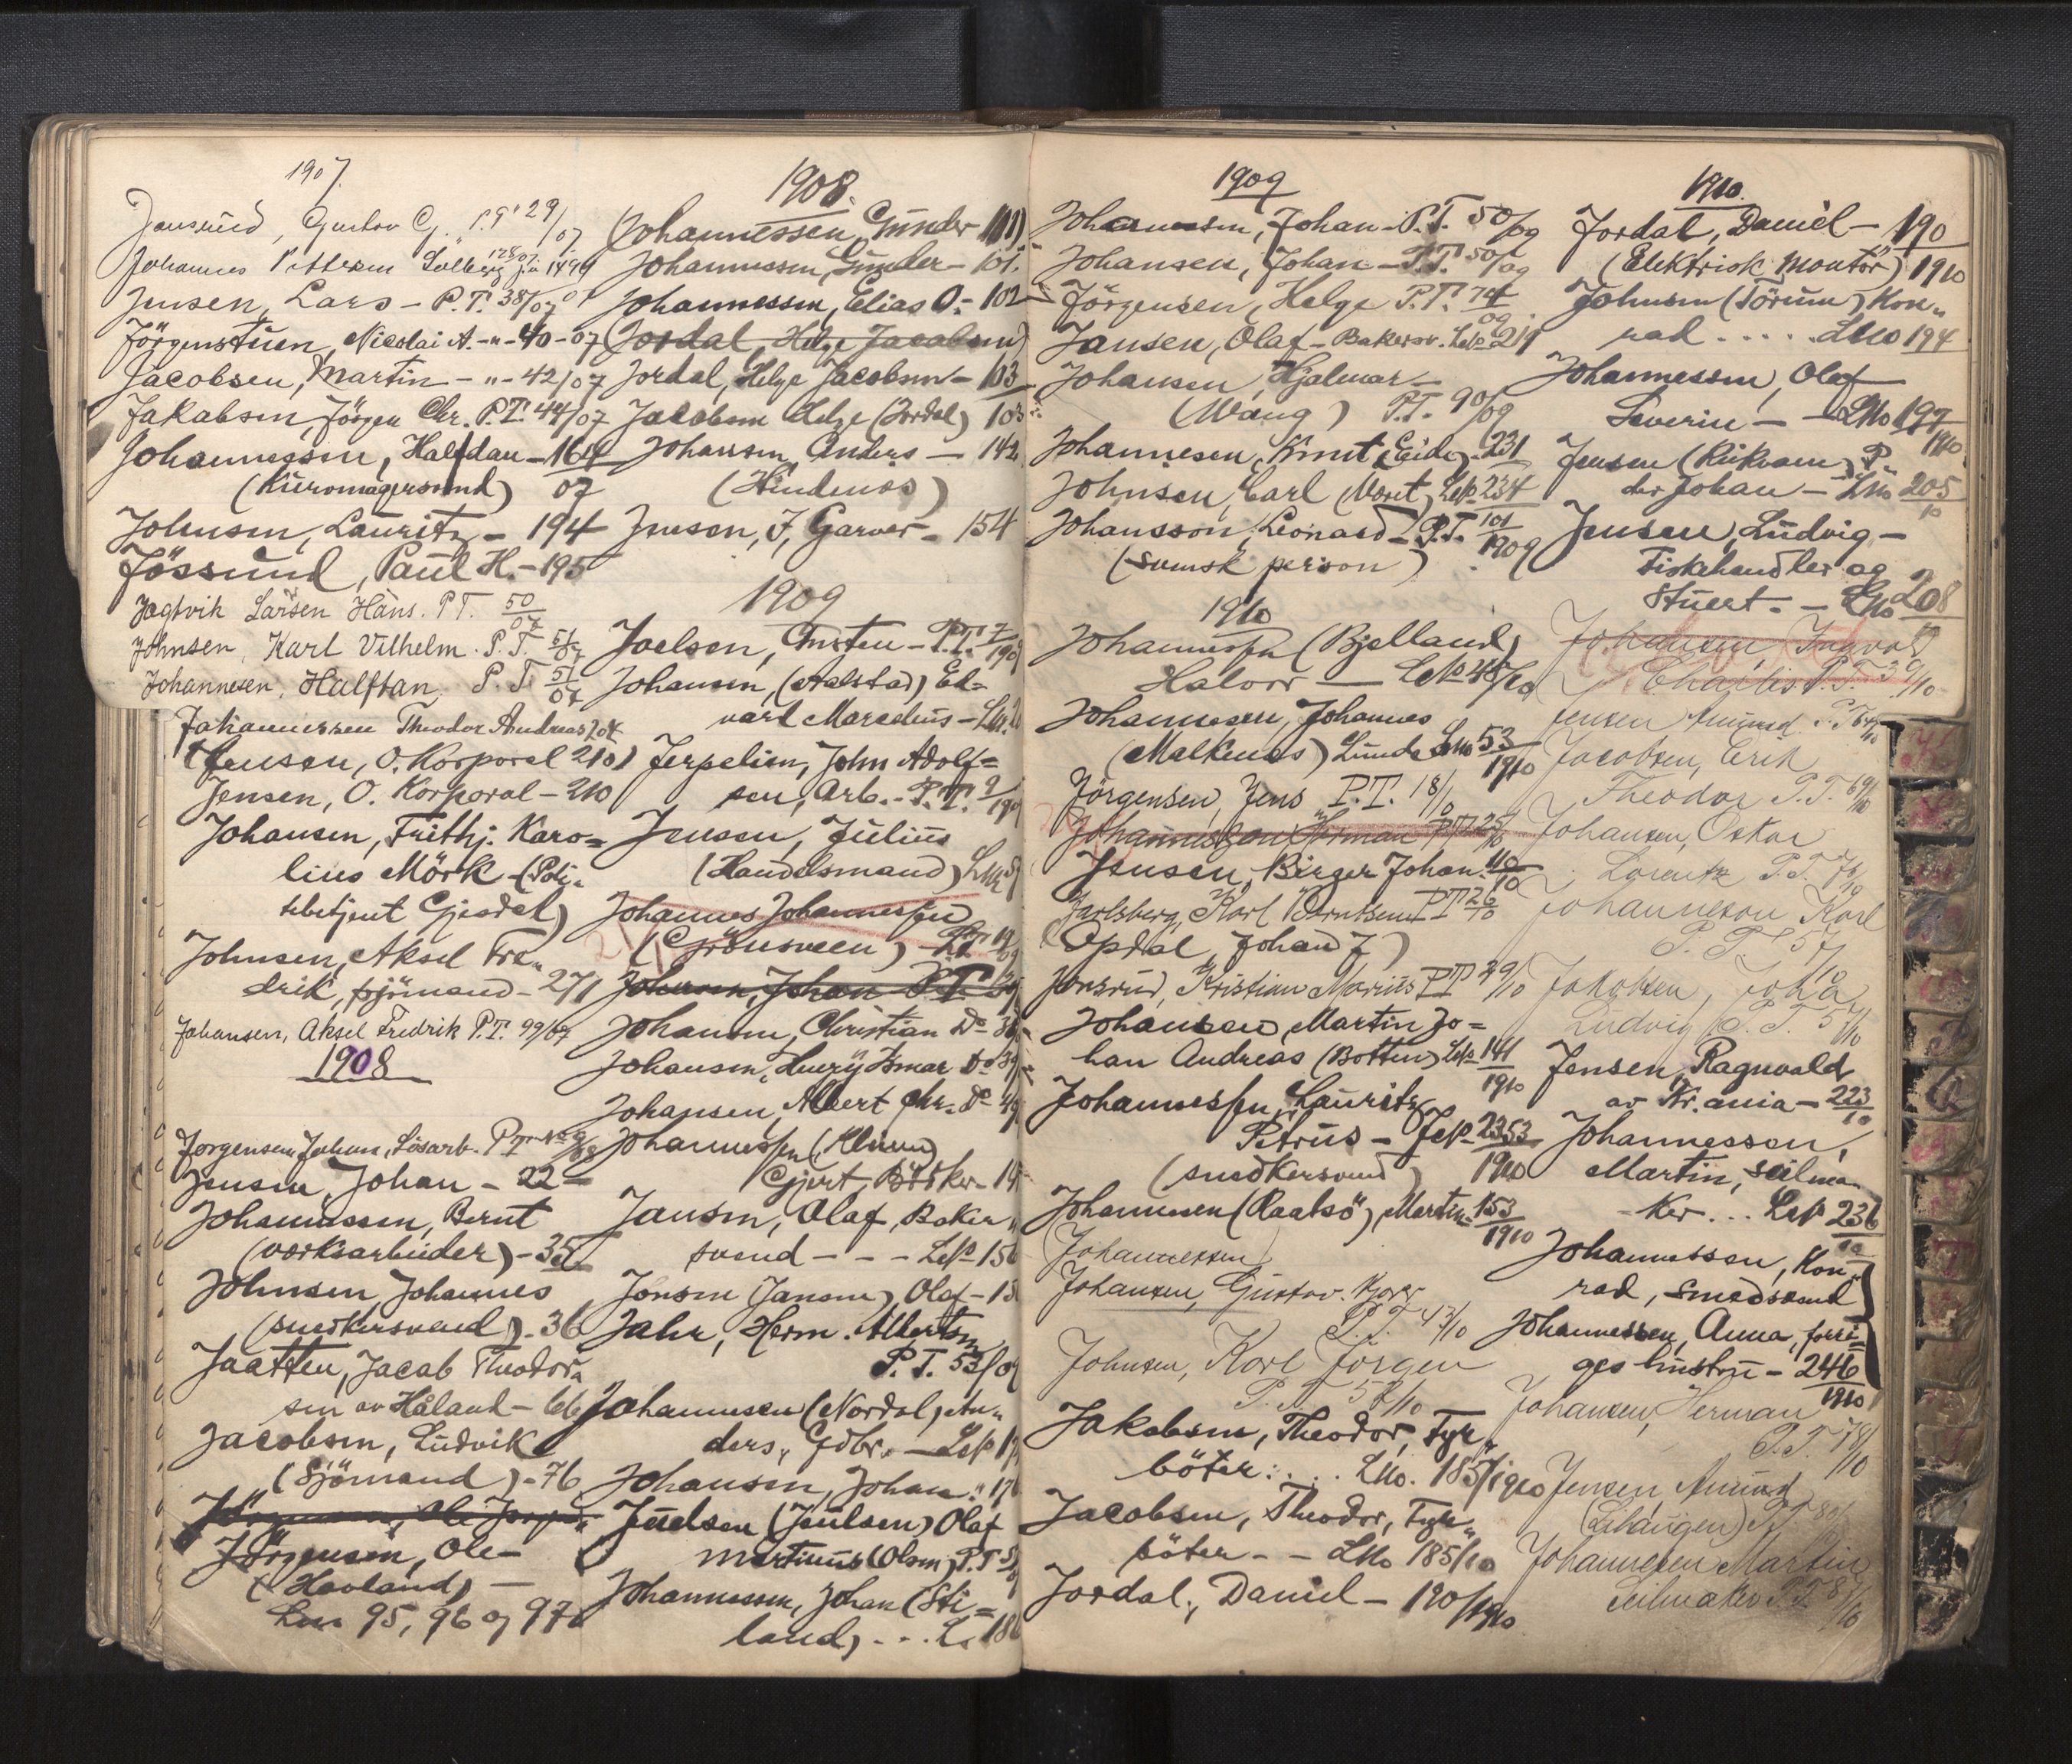 1907.
Jansrud, Gustav C. P.T. 29/07
Johannes Pettersen Solberg
Jensen, Lars - P.T. 38/07
Jörgenstuen, Nicolai A. - " - 40 - 07
Jacobsen, Martin - " - 42/07
Jakobsen, Jörgen Chr. P.T. 44/07
Johannessen, Halfdan - 164
(Kuromagersvend) 07
Johnsen, Lauritz - 194
Jössund, Paul H. - 195
Jagtvik Larsen Hans. P.T. 50/07
Johnsen, Karl Vilhelm. P.T. 51/07
Johannesen, Halftan. P.T. 51/07
Johannessen Theodor Andreas 204
(Jensen, O. Korporal 210)
Jensen, O. Korporal - 210
Johansen, Frithj. Karo=
lius Mörk - (Poli=
tibetjent Gjesdal)
Johnsen, Aksel Fre=
drik, sjömand - 271
Johansen, Aksel Fredrik P.T. 99/07
1908
Jorgensen Johan, Lösarb. P.T.
Jensen, Johan - 22 -
Johannessen, Bernt
(værksarbeider) - 35
Johnsen, Johannes
(snedkersvend) - 36
Jaatten, Jacob Theodor=
sen av Håland - 66
Jacobsen, Ludvik
(Sjömand) - 76
Jörgensen, Ole Jörgen
Jörgensen, Ole -
(Havland) -
Lno 95, 96 og 97
1908.
(Johannessen, Gunder 101)
Johannessen, Gunder - 101.
Johannessen, Elias O. - 102
(Jordal, Helge Jacobsen)
Jordal, Helge Jacobsen - 103
Jacobsen Helge (Jordal) 103
Johansen, Anders - 142
(Hindenæs)
Jensen, J, Garver - 154
1909
Joelsen, Torsten - P.T. 7/1909
Johansen, (Aalstad) Ed=
vart Marselius - Lno.
Jerpelien, John Adolf=
sen, Arb. - P.T. 9/190
Jensen, Julius
(Handelsmand) Lno
Johannes Johannessen
(Grönsveen) P.T. 19/09
Johansen, Johan P.T.
Johansen, Christian Do
Johansen, Henry Ismar Do 39
Johansen, Albert Chr. Do 49
Johannessen (Klunn)
Gjert, Bödker - 14
Jansen, Olaf, Baker=
svend - - - Lno 15
Jonsen (Jansen) Olaf - 15
Jahr, Herm. Albertsen
P.T. 53/09
Johannesen (Nordal, An=
ders, Gdbr. - Lno 1
Johansen, Johan " 17
Juelsen (Joulsen) Olaf
Martinus (Olsen) P.T.
Johannessen, Johan (Sti=
land) . . . L. 18
1909
Johannessen, Johan - P.T. 50/09
Johansen, Johan - P.T. 50/09
Jörgensen, Helge P.T. 74/09
Jansen, Olaf - Bakersv. Lno 219
Johansen, Hjalmar -
(Wang) P.T. 90/09
Johannesen, Knut (Eide) - 231
Johnsen, Carl (Moret) Lno 234
Johansson, Leonard - P.T. 101/1909
(svensk person)
1910
Johannessen (Bjelland)
Halvor - Lno 48/10
Johannesen, Johannes
(Malkenes) Lunde Lno 53/1910
Jörgensen, Jens P.T. 18/10
Johannessen Herman P.T. 25/10
Jensen, Birger Johan. 110/10
Jarlsberg, Karl Berntsen P.T. 26/10
(Opdal, Johan J)
Jonsrud, Kristian Marius P.T. 29/10
Johansen, Martin Jo=
han Andreas (Botten) Lno 141/1910
Johannessen, Lauritz
Petrus - Lno 2353/1910
(snedkersvend)
Johannesen (Raatsö) Martin - 153/1910
(Johannessen)
Johansen, Gustav.
P.T. 43/10
Johnsen, Karl Jörgen
P.T. 58/10
Jakobsen, Theodor, Fyr=
böter. . . . Lno. 185/1910
Jacobsen, Theodor, Fyr=
böter - - Lno 185/10
Jordal, Daniel - 190/1910
1910.
Jordal, Daniel - 190
(Elektrisk Montör) 1910
Johnsen (Törum) Kon=
rad . . . . . Lno 194
Johannessen, Olaf
Severin - - Lno 197/1910
Jensen (Rukvam) P=
der Johan - Lno 205/10
Jensen, Ludvig -
Fiskehandler og
Stuert. - Lno 208
Johansen, Ingvald
Charles P.T. 39/10
Jensen Amund P.T. 64/10
Jacobsen, Erik
Theodor P.T. 69/10
Johansen, Oskar
Lorentz P.T. 76/10
Johannesen Karl
P.T. 57/10
Jakobsen, Johan
Ludvig P.T. 5/10
Jensen, Ragnvald
av Kr.ania - 223/10
Johannessen,
Martin, seilma=
ker . . . Lno 236/10
Johannessen, Kon=
rad, smedsvend
Johannessen, Anna, forri=
ges hustru - 246/1910
Johansen, Herman
P.T. 78/10
Jensen, Amund
(Lihaugen) P.T. 80/
Johannesen Martin
Seilmaker P.T. 8/10